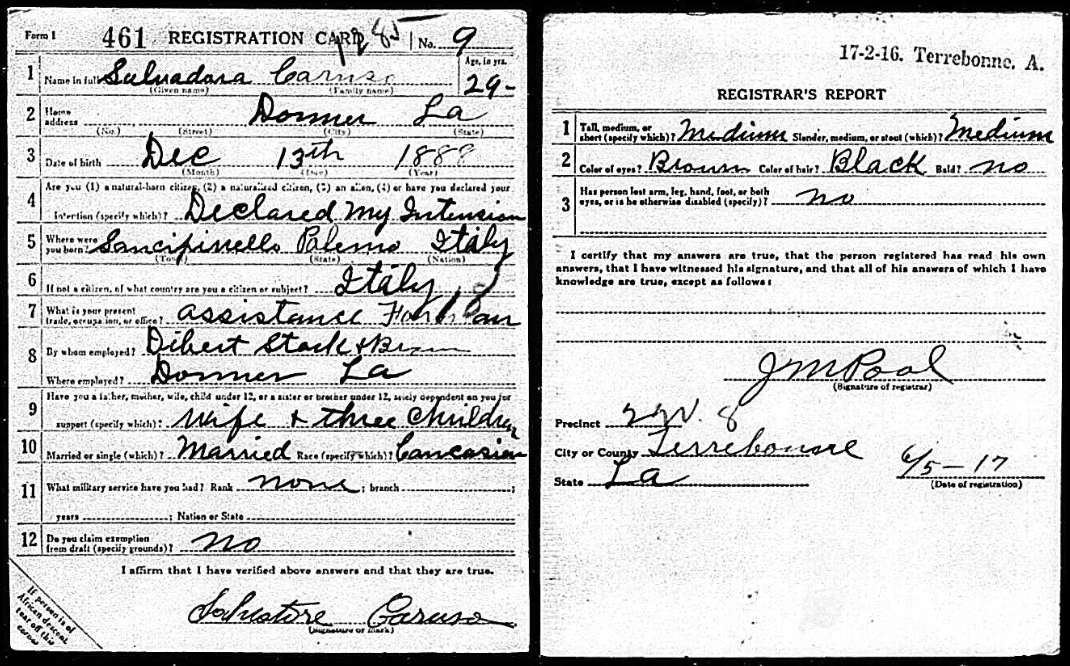 Form 1 461 REGISTRATION CARD No. 9
1 Name in full Salvadora Caruso Age, in yrs. 29-
(Given name) (Family name)
2 Home address Donner La
(No.) (Street) (City) (State)
3 Date of birth Dec 13th 1888
(Month) (Day) (Year)
4 Are you (1) a natural-born citizen, (2) a naturalized citizen, (3) an alien, (4) or have you declared your
intention (specify which)? Declared My Intension
5 Where were you born? Palermo Italy
(Town) (State) (Nation)
6 If not a citizen, of what country are you a citizen or subject? Italy
7 What is your present trade, occupation, or office? assistance
8 By whom employed? Dibert Stark &
Where employed? Donner La
9 Have you a father, mother, wife, child under 12, or a sister or brother under 12, solely dependent on you for
support (specify which)? Wife & three Children
10 Married or single (which)? Married Race (specify which)? Caucasian
11 What military service have you had? Rank none ; branch ;
years ; Nation or State
12 Do you claim exemption from draft (specify grounds)? no
I affirm that I have verified above answers and that they are true.
Salvatore Caruso
(Signature or mark)
If person is of
African descent,
tear off this
corner
17-2-16. Terrebonne, A.
REGISTRAR'S REPORT
1 Tall, medium, or short (specify which)? Medium Slender, medium, or stout (which)? Medium
2 Color of eyes? Brown Color of hair? Black Bald? no
3 Has person lost arm, leg, hand, foot, or both
eyes, or is he otherwise disabled (specify)? no
I certify that my answers are true, that the person registered has read his own
answers, that I have witnessed his signature, and that all of his answers of which I have
knowledge are true, except as follows:
J M Pool
(Signature of registrar)
Precinct 8
City or County Terrebonne
State La 6/5-17
(Date of registration)